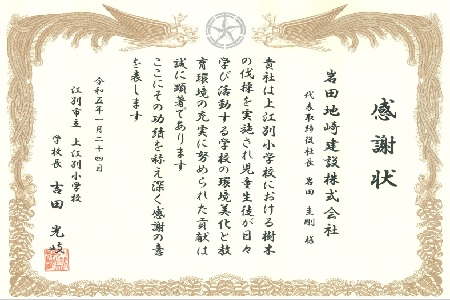 感謝状
岩田地崎建設株式会社
代表取締役社長 岩田 圭剛 様
貴社は上江別小学校における樹木
の伐採を実施され児童生徒が日々
学び活動する学校の環境美化と教
育環境の充実に努められた貢献は
誠に顕著であります
ここにその功績を称え深く感謝の意
を表します
令和五年一月二十四日
江別市立 上江別小学校
学校長 吉田 光